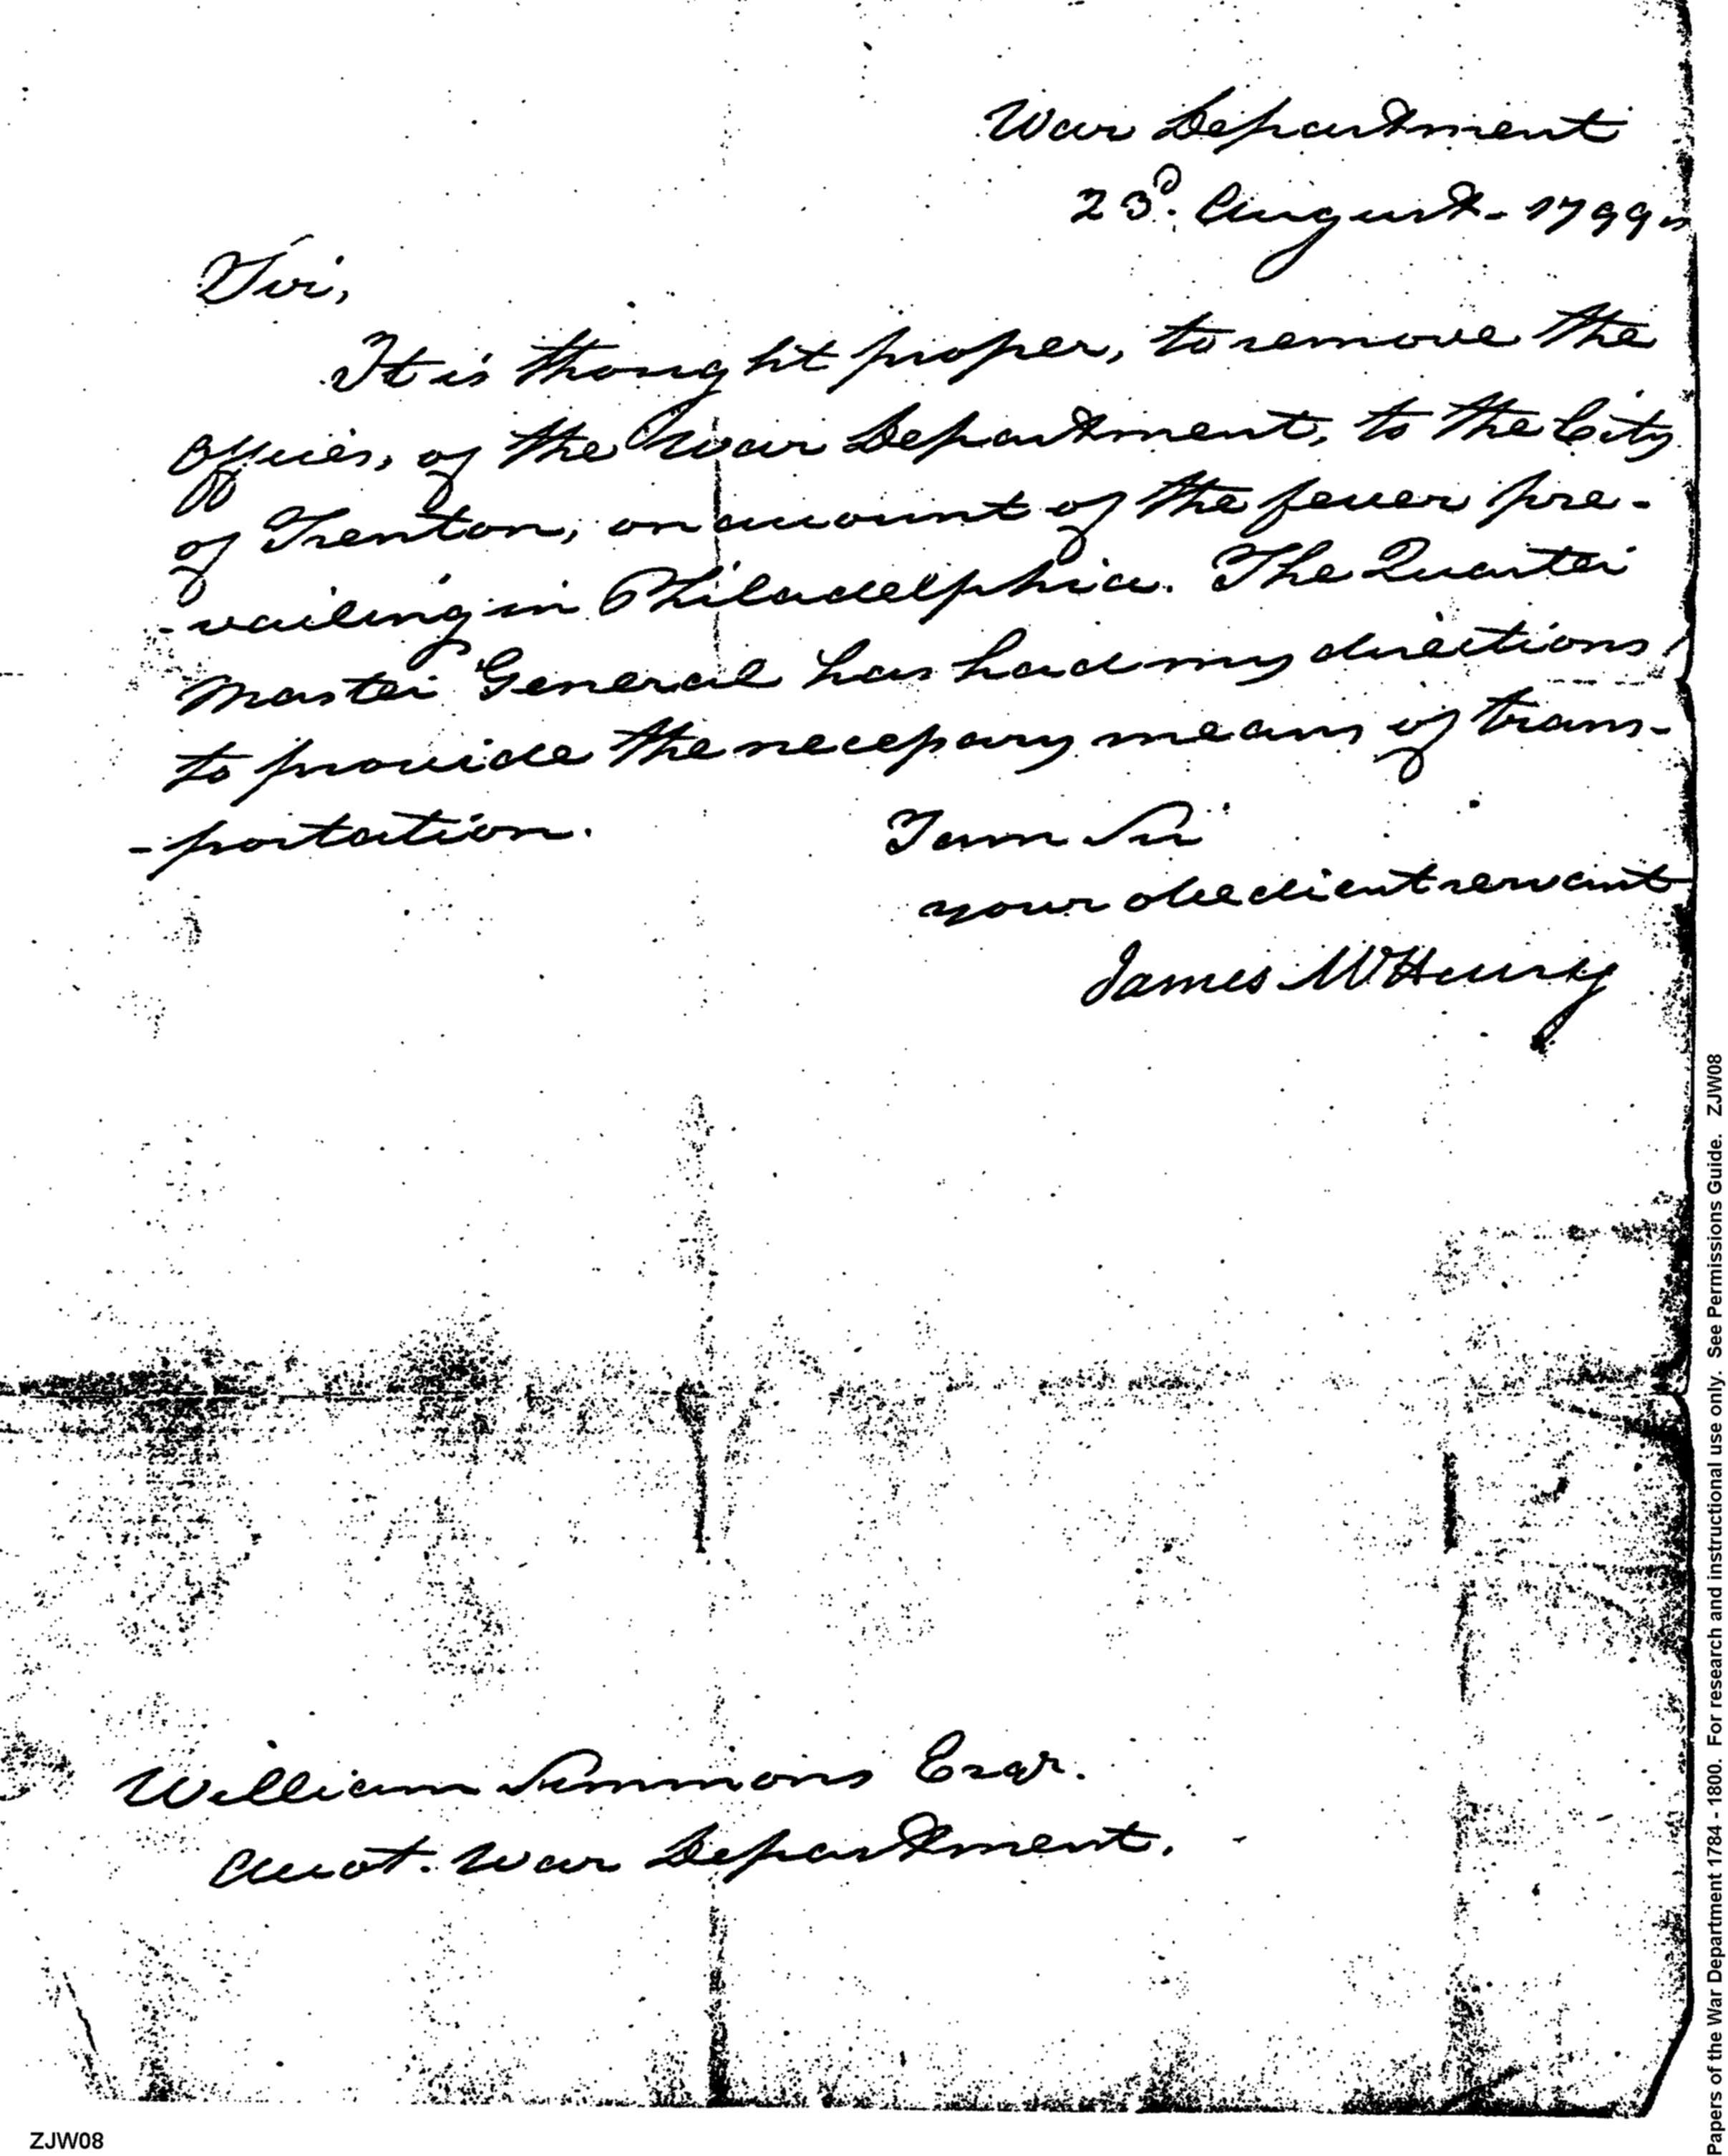 War Department
23d. August - 1799
Sir,
It is thought proper, to remove the
Offices, of the War Department, to the City
of Trenton, on account of the fever pre-
-vailing in Philadelphia. The Quarter
Master General has had my directions
to provide the necessary means of trans-
-portation.
I am Sir
your obedient servant
James McHenry
William Simmons Esqr.
Accot. War Department.
ZJW08
Papers of the War Department 1784 - 1800. For research and instructional use only. See Permissions Guide. ZJW08